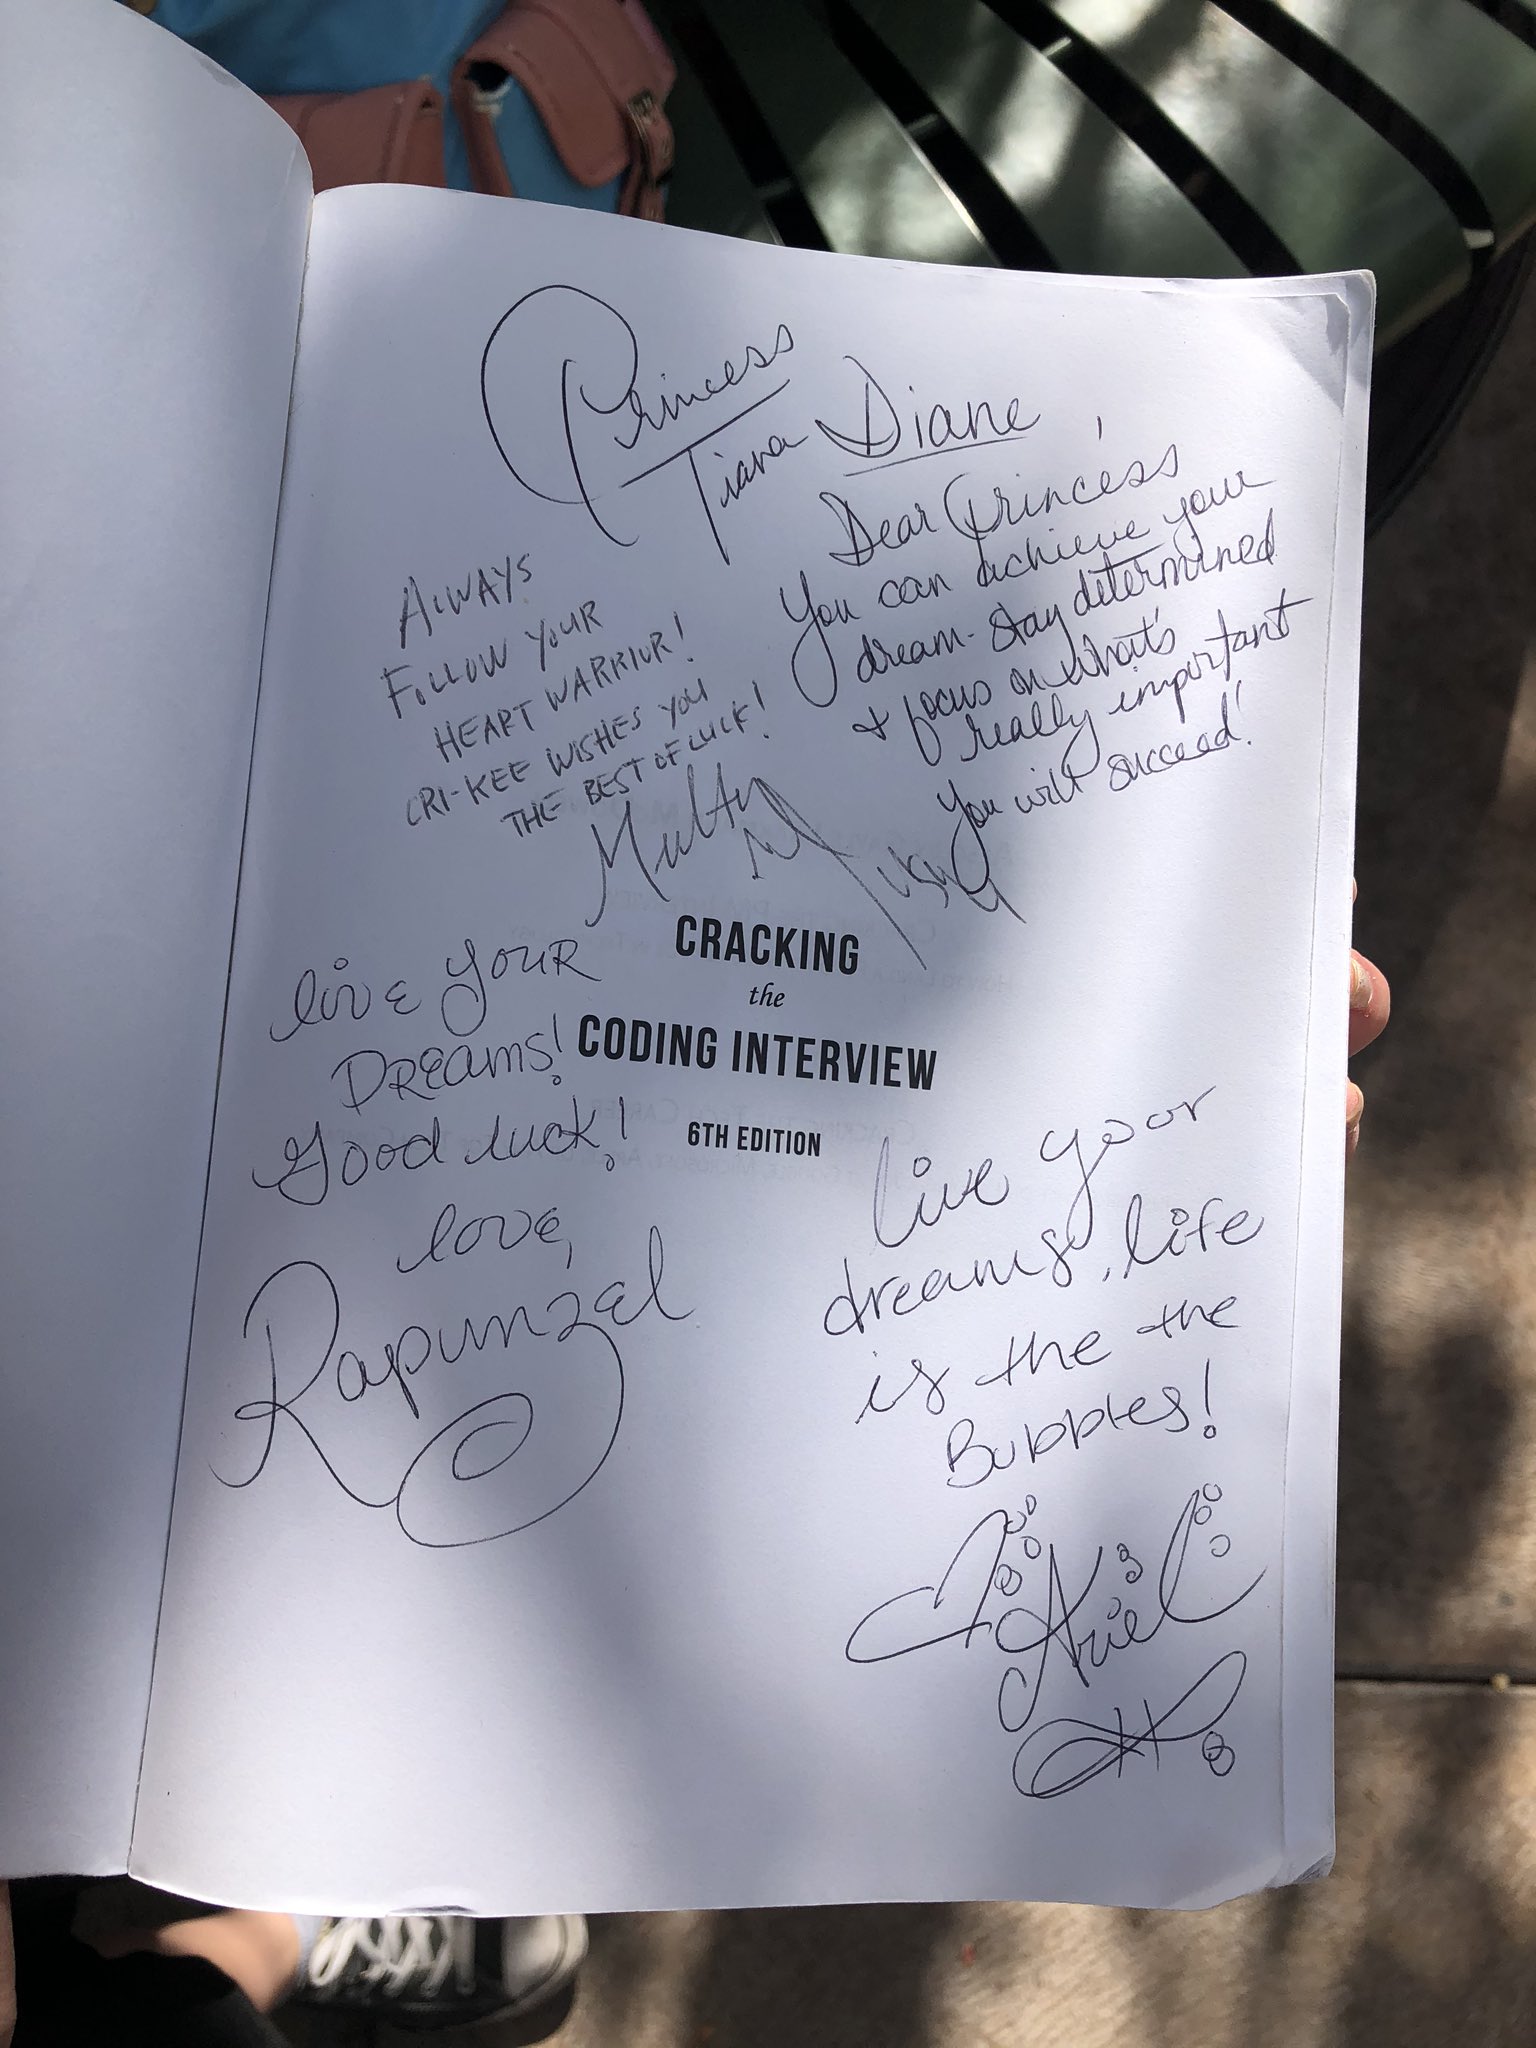 Princess
Tiana
Diane
Dear Princess
You can achieve your
dream - stay determined
& focus on what's
really important
You will succeed!
ALWAYS
FOLLOW YOUR
HEART WARRIOR!
CRI-KEE WISHES YOU
THE BEST OF LUCK!
CRACKING
the
CODING INTERVIEW
6TH EDITION
live your
DREAMS!
Good luck!
love,
Rapunzel
live your
dreams, life
is the the
Bubbles!
Ariel